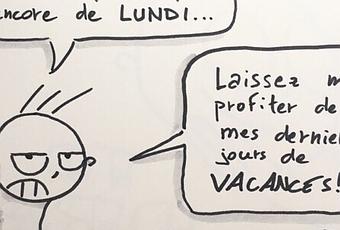 encore de LUNDI...
Laissez
profiter de
mes
jours de
VACANCES!